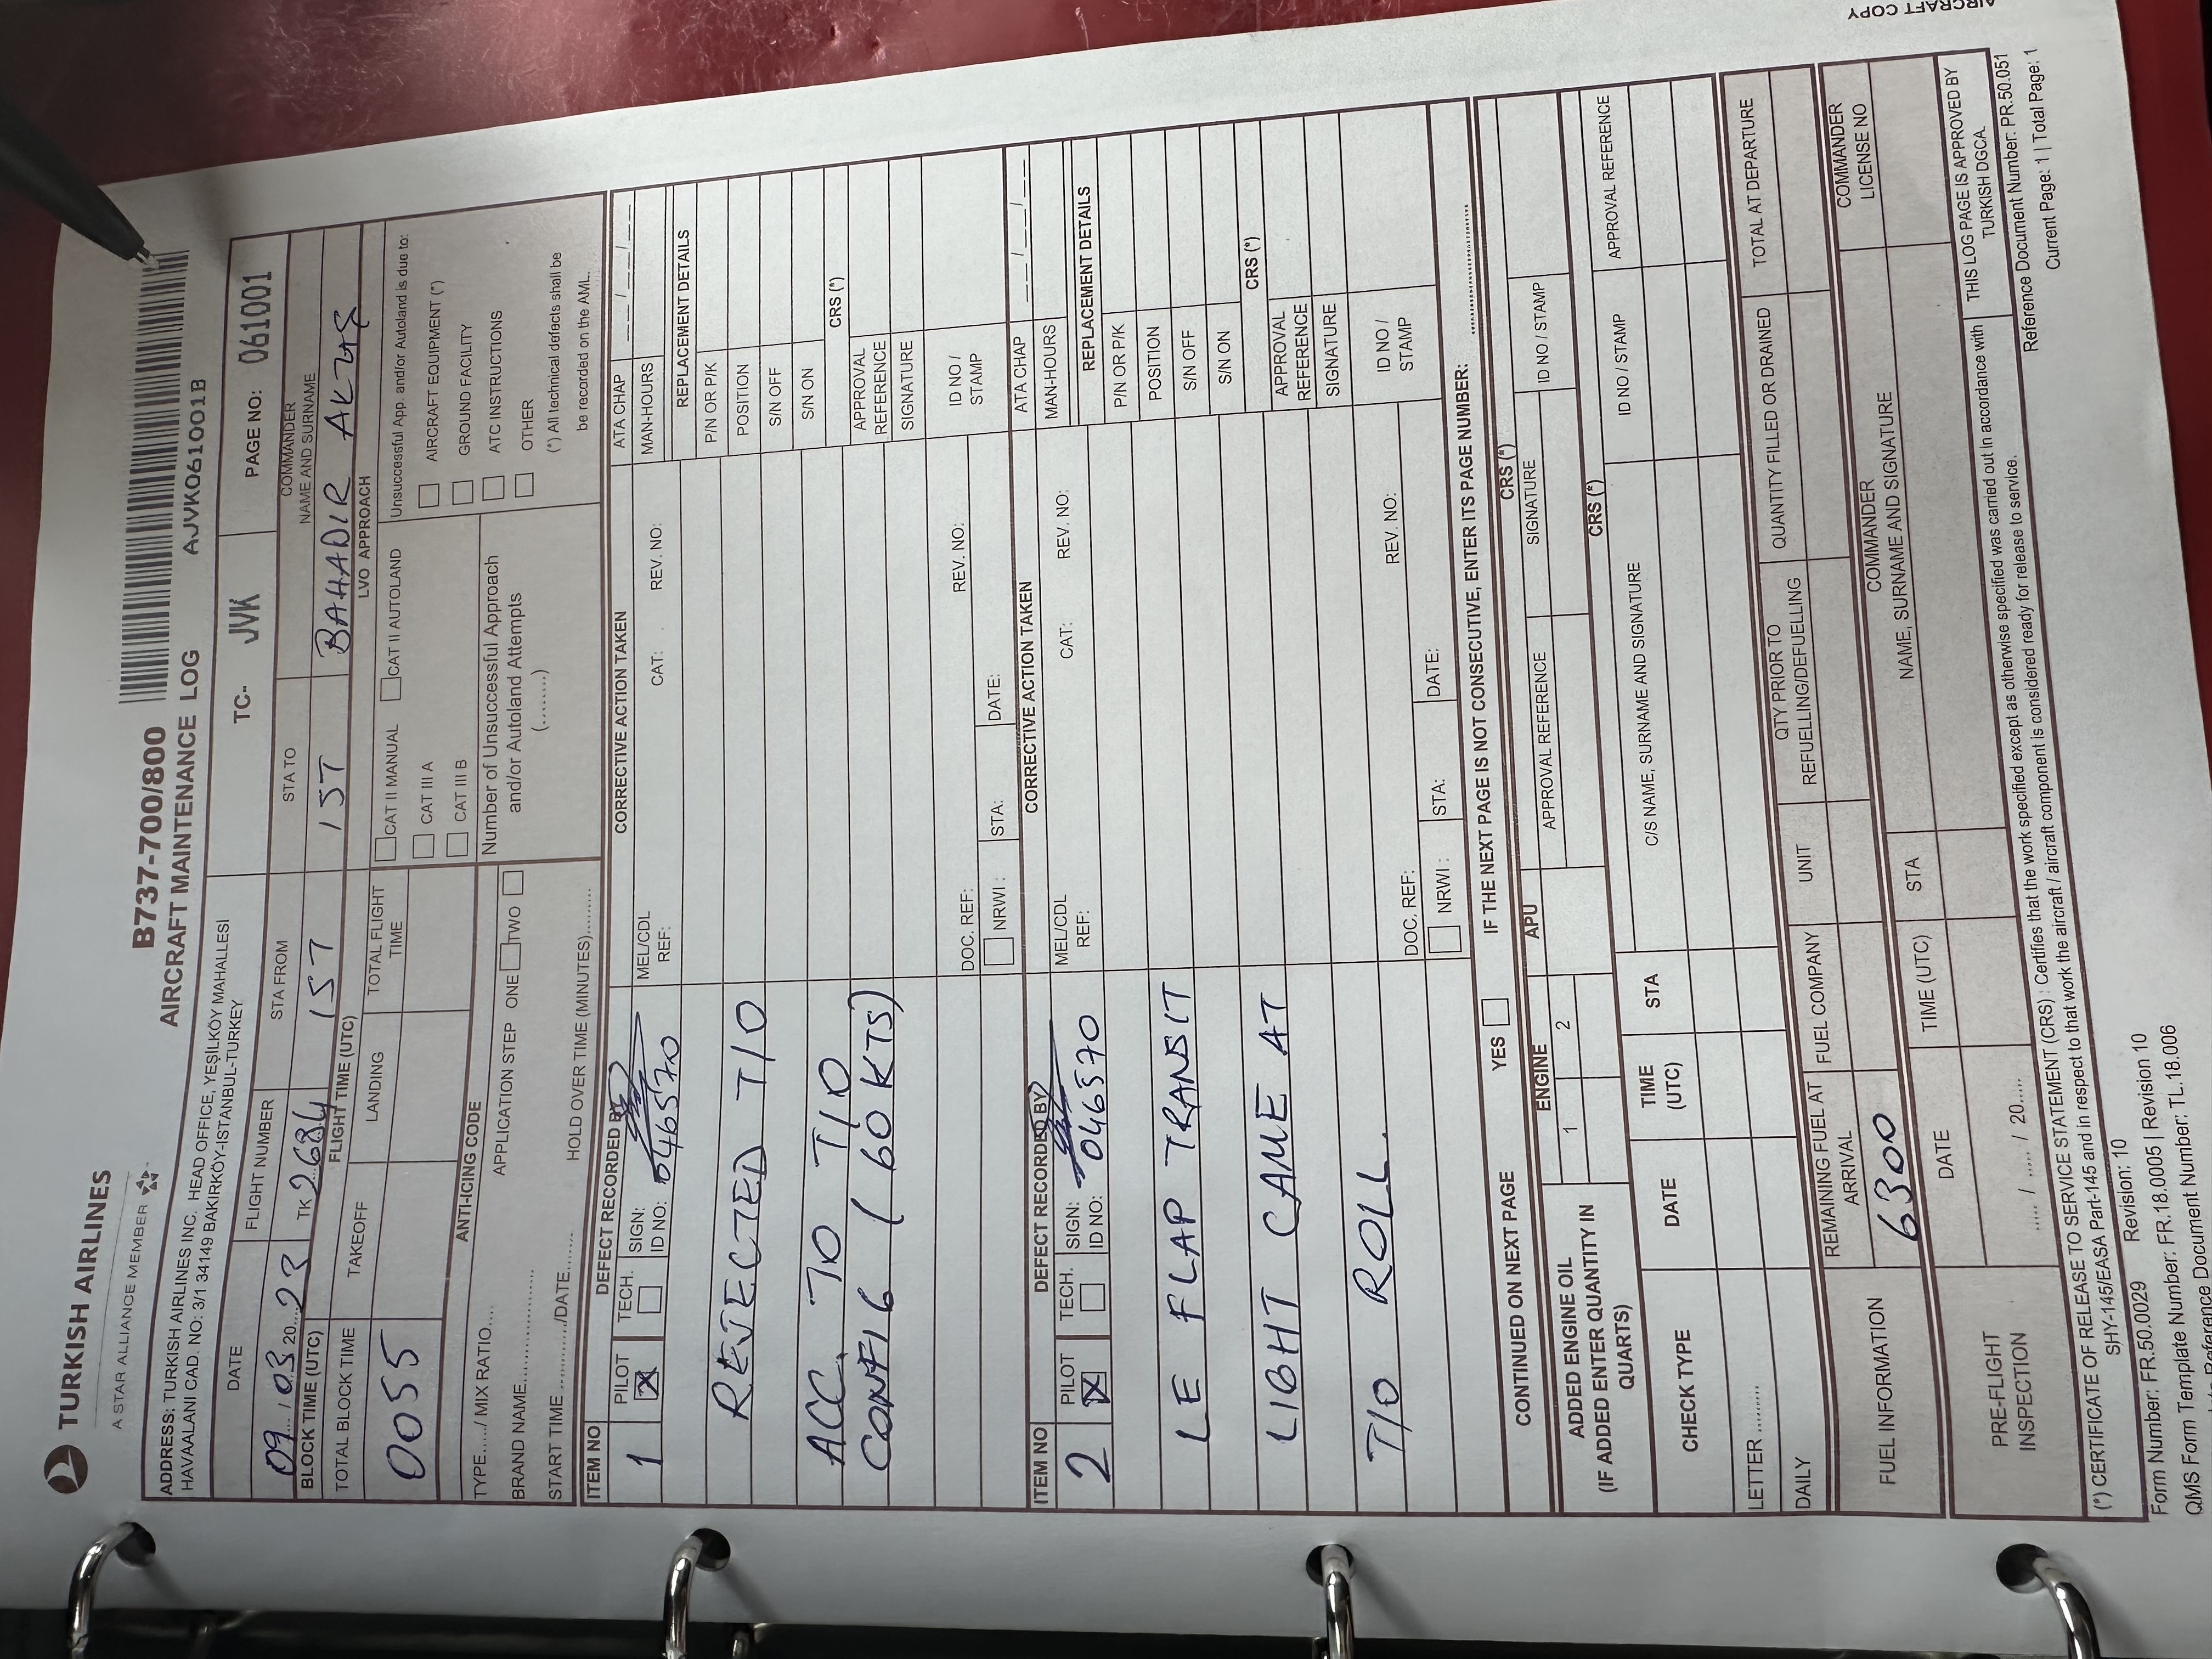 TURKISH AIRLINES
A STAR ALLIANCE MEMBER
B737-700/800
AIRCRAFT MAINTENANCE LOG
AJVK061001B
ADDRESS: TURKISH AIRLINES INC. HEAD OFFICE, YEŞİLKÖY MAHALLESİ
HAVAALANI CAD. NO: 3/1 34149 BAKIRKÖY-ISTANBUL-TURKEY
TC- JVK
PAGE NO: 061001
DATE
FLIGHT NUMBER
STA FROM
STA TO
COMMANDER
NAME AND SURNAME
09 / 03 20 23
TK 2684
IST
IST
BAHADIR
BLOCK TIME (UTC)
FLIGHT TIME (UTC)
LVO APPROACH
TOTAL BLOCK TIME
TAKEOFF
LANDING
TOTAL FLIGHT
TIME
0055
CAT II MANUAL
CAT II AUTOLAND
CAT III A
CAT III B
Number of Unsuccessful Approach
and/or Autoland Attempts
(........)
Unsuccessful App. and/or Autoland is due to:
AIRCRAFT EQUIPMENT (*)
GROUND FACILITY
ATC INSTRUCTIONS
OTHER
(*) All technical defects shall be
be recorded on the AML.
ANTI-ICING CODE
TYPE...../ MIX RATIO....
APPLICATION STEP ONE TWO
BRAND NAME..................
START TIME ............/DATE........
HOLD OVER TIME (MINUTES)........
ITEM NO
DEFECT RECORDED BY
CORRECTIVE ACTION TAKEN
ATA CHAP __/__/__
1
PILOT X
TECH.
SIGN:
ID NO: 046570
MEL/CDL
REF:
CAT:
REV. NO:
MAN-HOURS
REPLACEMENT DETAILS
REJECTED T/O
ACC. TO T/O
CONFIG (60 KTS)
P/N OR P/K
POSITION
S/N OFF
S/N ON
CRS (*)
APPROVAL
REFERENCE
SIGNATURE
ID NO /
STAMP
DOC. REF:
REV. NO:
NRWI :
STA:
DATE:
ITEM NO
DEFECT RECORDED BY
CORRECTIVE ACTION TAKEN
ATA CHAP __/__/__
2
PILOT X
TECH.
SIGN:
ID NO: 046570
MEL/CDL
REF:
CAT:
REV. NO:
MAN-HOURS
REPLACEMENT DETAILS
LE FLAP TRANSIT
LIGHT CAME AT
T/O ROLL.
P/N OR P/K
POSITION
S/N OFF
S/N ON
CRS (*)
APPROVAL
REFERENCE
SIGNATURE
ID NO /
STAMP
DOC. REF:
REV. NO:
NRWI :
STA:
DATE:
CONTINUED ON NEXT PAGE
YES
IF THE NEXT PAGE IS NOT CONSECUTIVE, ENTER ITS PAGE NUMBER: ....................
ADDED ENGINE OIL
(IF ADDED ENTER QUANTITY IN
QUARTS)
ENGINE
1
2
APU
CRS (*)
APPROVAL REFERENCE
SIGNATURE
ID NO / STAMP
CHECK TYPE
DATE
TIME
(UTC)
STA
CRS (*)
C/S NAME, SURNAME AND SIGNATURE
ID NO / STAMP
APPROVAL REFERENCE
LETTER ........
DAILY
FUEL INFORMATION
REMAINING FUEL AT
ARRIVAL
FUEL COMPANY
UNIT
QTY PRIOR TO
REFUELLING/DEFUELLING
QUANTITY FILLED OR DRAINED
TOTAL AT DEPARTURE
6300
PRE-FLIGHT
INSPECTION
DATE
TIME (UTC)
STA
COMMANDER
NAME, SURNAME AND SIGNATURE
COMMANDER
LICENSE NO
..... / ..... / 20.....
(*) CERTIFICATE OF RELEASE TO SERVICE STATEMENT (CRS) : Certifies that the work specified except as otherwise specified was carried out in accordance with
SHY-145/EASA Part-145 and in respect to that work the aircraft / aircraft component is considered ready for release to service.
THIS LOG PAGE IS APPROVED BY
TURKISH DGCA.
Form Number: FR.50.0029 Revision: 10
Reference Document Number: PR.50.051
QMS Form Template Number: FR.18.0005 | Revision 10
Current Page: 1 | Total Page: 1
Reference Document Number: TL.18.006
AIRCRAFT COPY